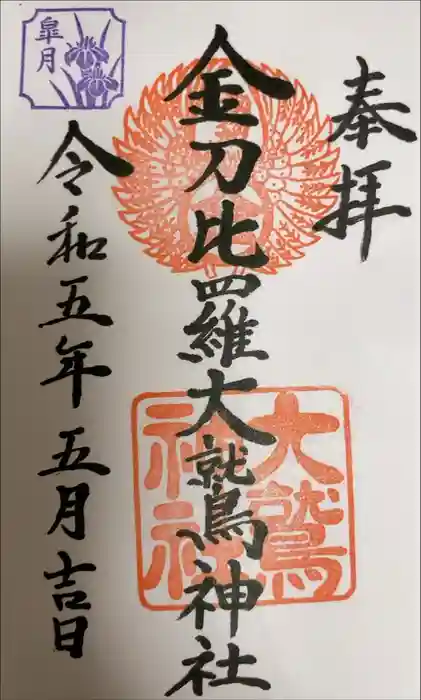 奉拝
金刀比羅大鷲神社
大鷲
神社
令和五年五月吉日
皐月